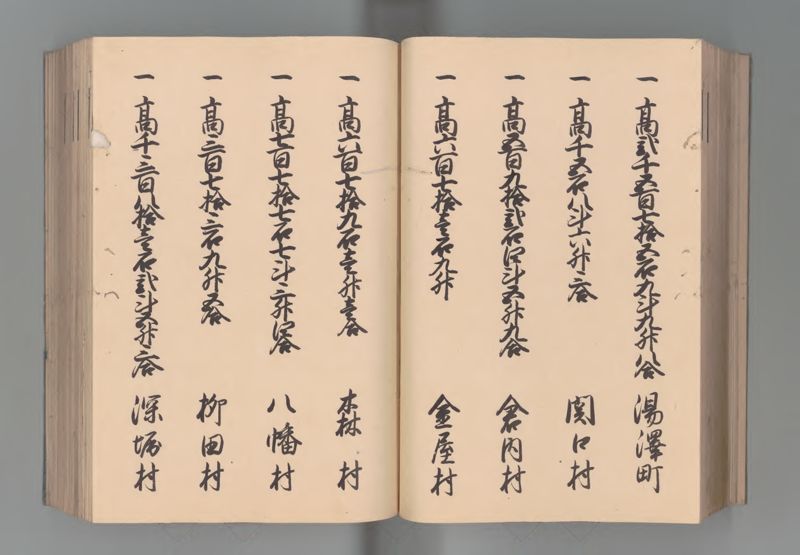 一 高貳千五百七拾五石九斗九升八合 湯澤町
一 高千五石八斗六升二合 関口村
一 高五百九拾貳石四斗五升九合 倉内村
一 高六百七拾壱石九升 金屋村
一 高六百七拾九石壱升壱合 森村
一 高七百七拾七石七斗二升四合 八幡村
一 高三百七拾二石九升五合 柳田村
一 高千三百八拾壱石貳斗五升二合 深堀村